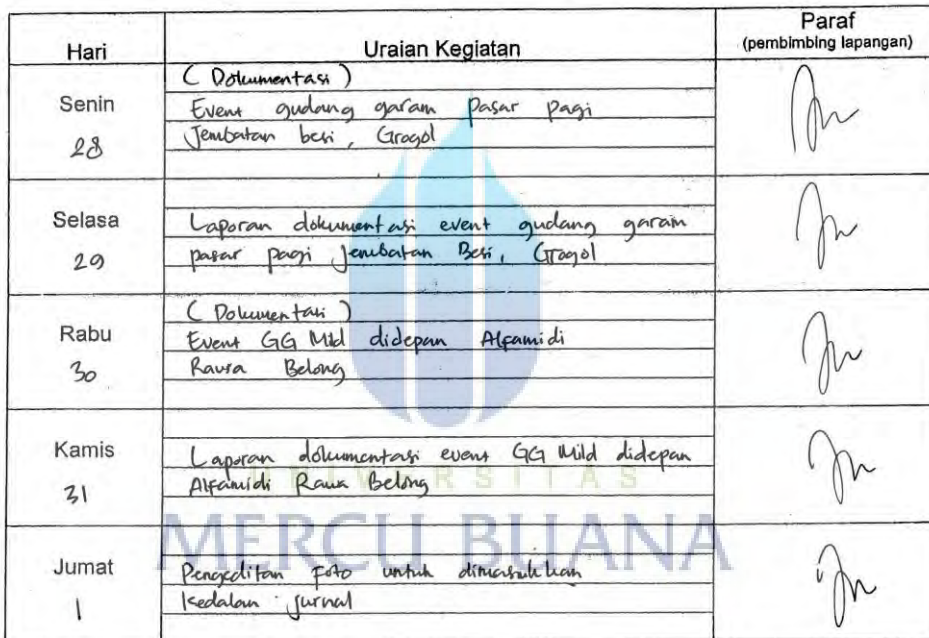 Hari Uraian Kegiatan Paraf
(pembimbing lapangan)
Senin
28
( Dokumentasi )
Event gudang garam pasar pagi
Jembatan besi, Grogol
Selasa
29
Laporan dokumentasi event gudang garam
pasar pagi Jembatan Besi, Grogol
Rabu
30
( Dokumentasi )
Event GG Mild didepan Alfamidi
Rawa Belong
Kamis
31
Laporan dokumentasi event GG Mild didepan
Alfamidi Rawa Belong
UNIVERSITAS
MERCU BUANA
Jumat
1
Pengeditan Foto untuk dimasukkan
kedalam jurnal